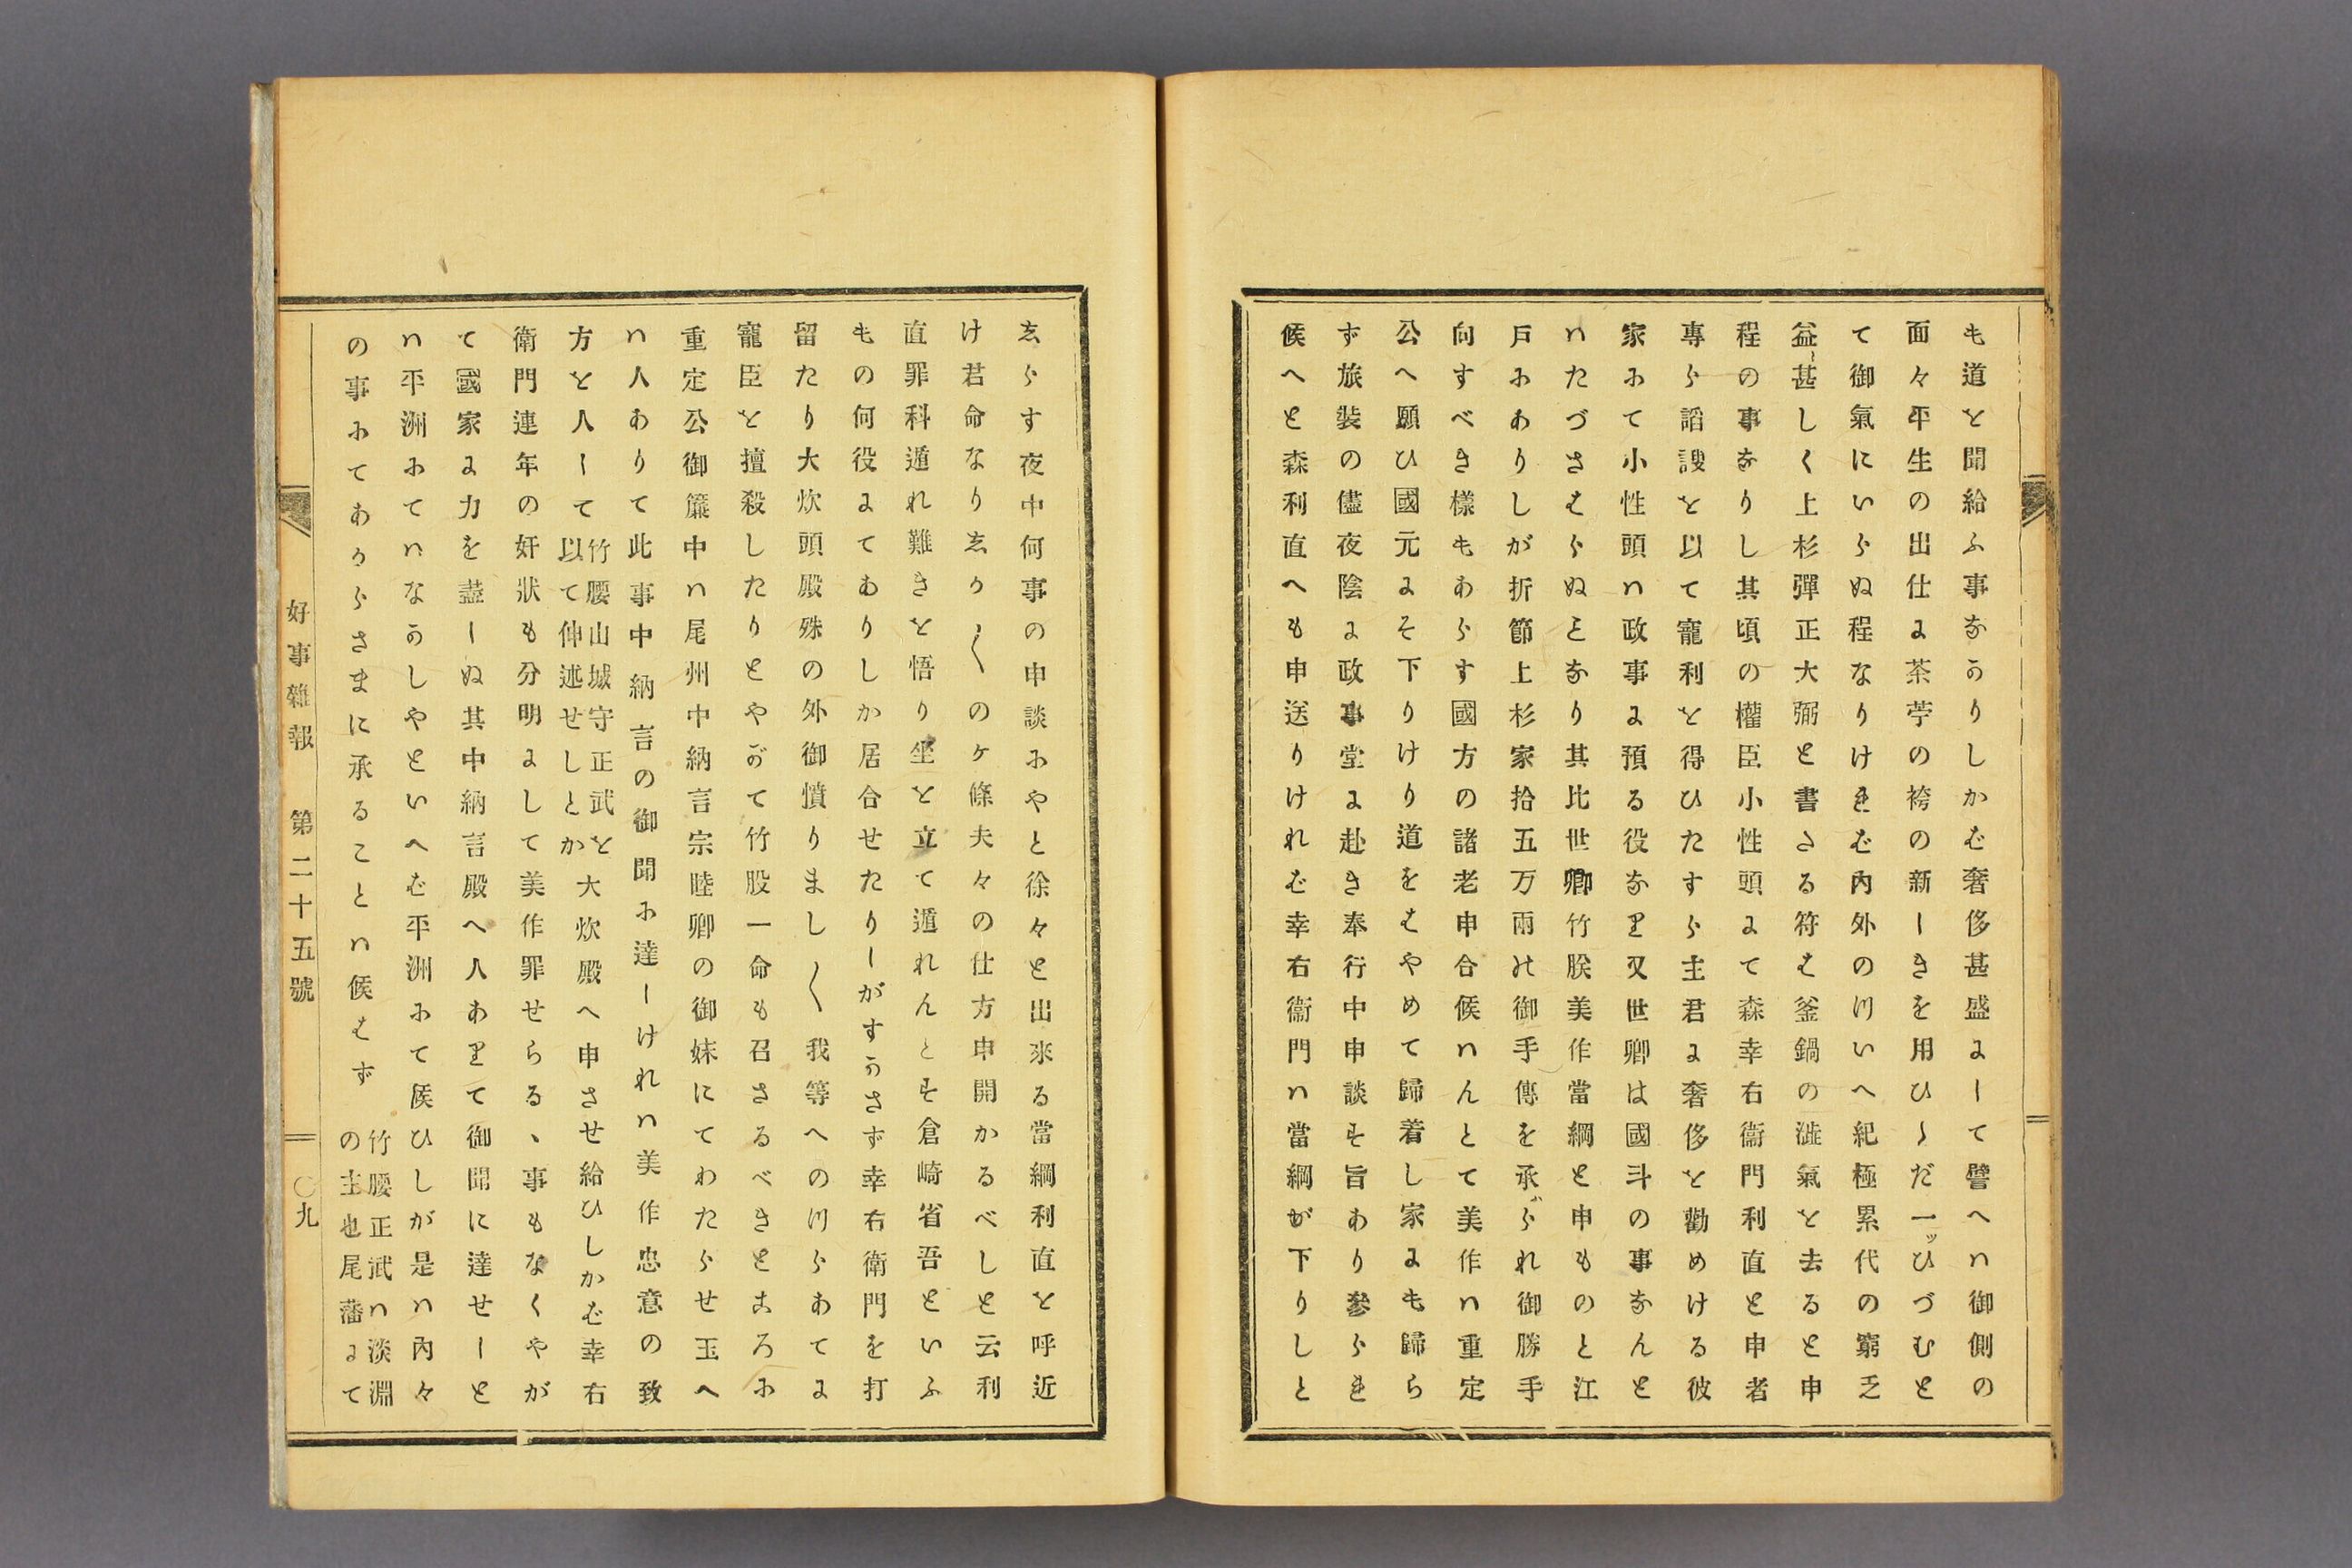 も道を聞給ふ事なかりしかば奢侈甚盛にして譬へハ御側の
面々平生の出仕に茶苧の袴の新しきを用ひしだ一ッひづむと
て御氣にいらぬ程なりけれバ內外の川いへ紀極累代の窮乏
益〻甚しく上杉彈正大弼と書さる符は釜鍋の澁氣を去ると申
程の事なりし其頃の權臣小性頭にて森幸右衞門利直と申者
專ら謟諛を以て寵利を得ひたすら主君に奢侈を勸めける彼
家にて小性頭ハ政事に預る役なり又世卿は國斗の事なんと
いたづさはらぬとなり其比世卿竹股美作當綱と申ものと江
戶にありしが折節上杉家拾五万兩の御手傳を承ハられ御勝手
向すべき樣もあらす國方の諸老申合候ハんとて美作ハ重定
公へ願ひ國元にそ下りけり道をはやめて歸着し家にも歸ら
ず旅裝の儘夜陰に政事堂に赴き奉行中申談す旨あり參られ
候へと森利直へも申送りけれバ幸右衞門ハ當綱が下りしと
ゑらす夜中何事の申談にやと徐々と出來る當綱利直を呼近
け君命なりゑか〳〵のヶ條夫々の仕方申開かるべしと云利
直罪科遁れ難きを悟り坐を立て遁れんとす倉崎省吾といふ
もの何役にてありしか居合せたりしがすかさず幸右衞門を打
留たり大炊頭殿殊の外御憤りまし〳〵我等への川らあてに
寵臣を擅殺したりとやがて竹股一命も召さるべきところに
重定公御簾中ハ尾州中納言宗睦卿の御妹にてわたらせ玉へ
ハ人ありて此事中納言の御聞に達しけれハ美作忠意の致
方を人して竹腰山城守正武を以て仲述せしとか大炊殿へ申させ給ひしかば幸右
衞門連年の奸狀も分明にして美作罪せらるゝ事もなくやが
て國家に力を盡しぬ其中納言殿へ人ありて御聞に達せしと
ハ平洲にてハなかしやといへバ平洲にて候ひしが是ハ內々
の事にてあからさまに承ることハ候はず 竹腰正武ハ淡淵の主也尾藩にて
好事雜報 第二十五號 〇九